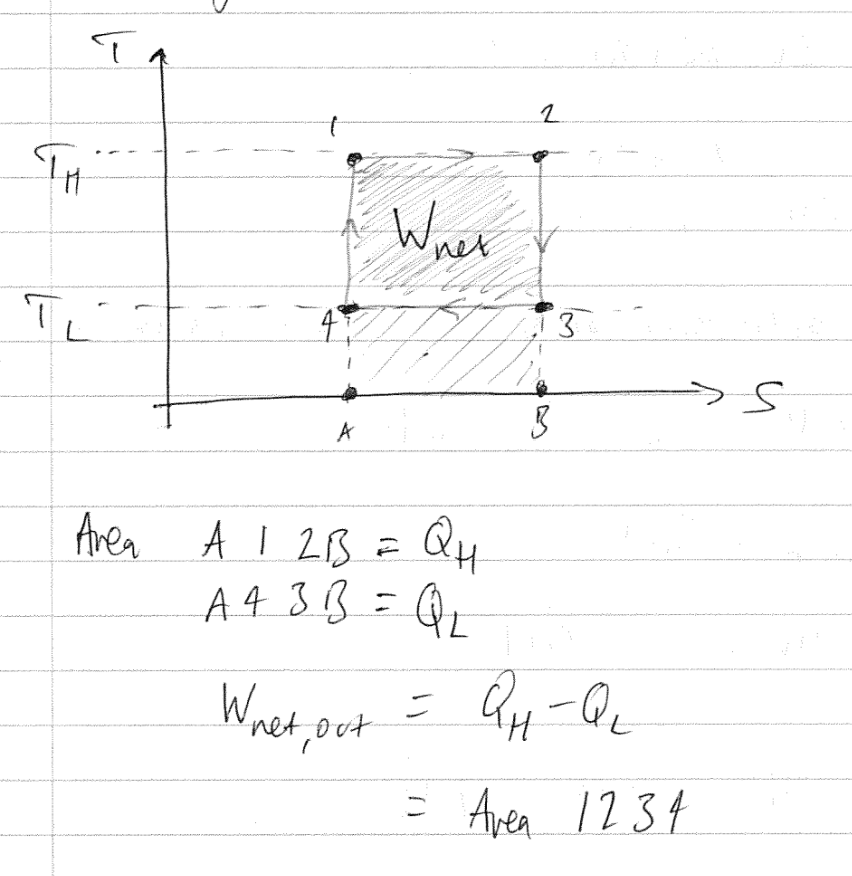 T
1 2
T_H
W_net
T_L
4 3
S
A B
Area A 1 2B = Q_H
A 4 3 B = Q_L
W_net,out = Q_H - Q_L
= Area 1234